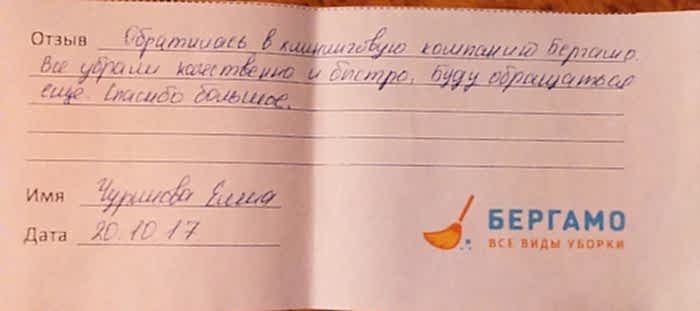 Отзыв Обратилась в клининговую компанию Бергамо.
Все убрали качественно и быстро. Буду обращаться
еще. Спасибо большое.
Имя Чурикова Елена
Дата 20.10.17
БЕРГАМО
ВСЕ ВИДЫ УБОРКИ